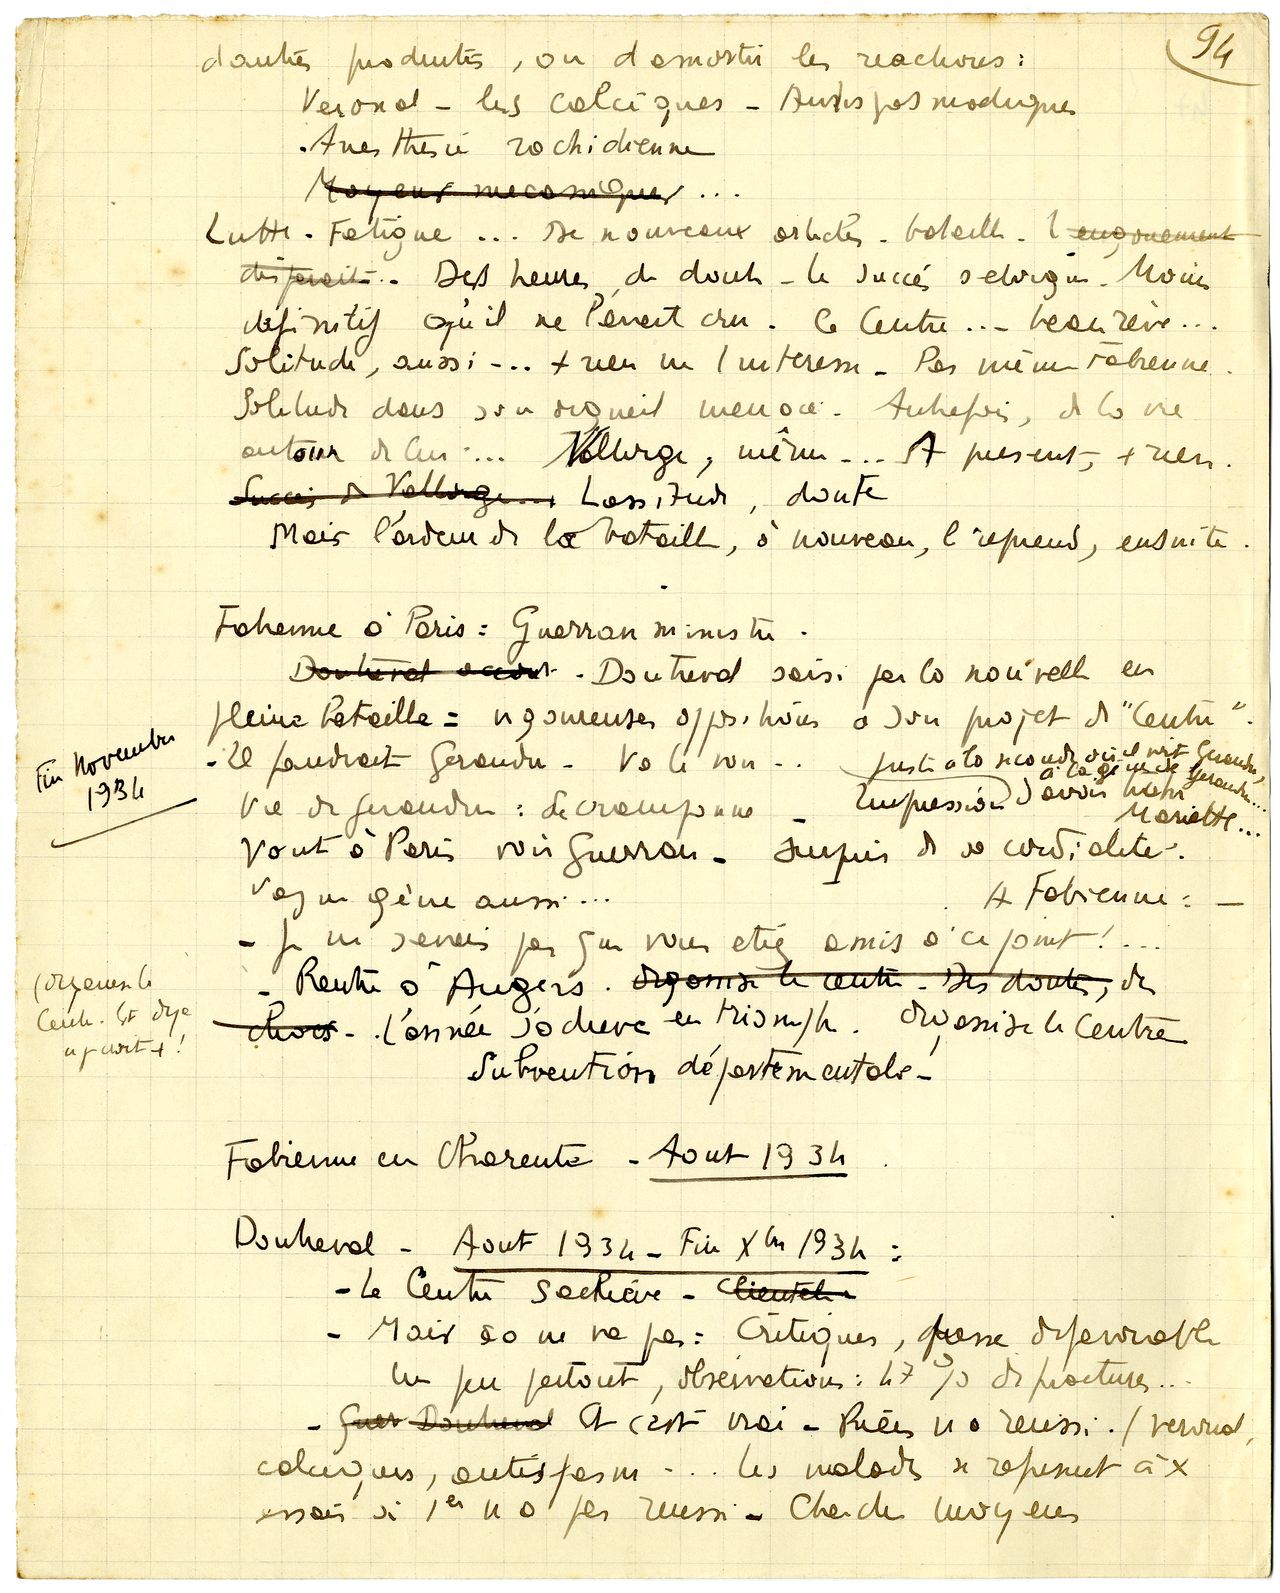 94
d'autres produits, ou d'amortir les reactions :
Veronal - les calciques - Antispasmodiques
. Anesthesie rachidienne
Moyens mecaniques ...
Lutte - Fatigue ... De nouveaux articles - bataille - l'engouement
disparait - Des heures de doute - le succès s'eloigne. Moins
definitif qu'il ne l'avait cru. Ce Centre ... beau rêve ...
Solitude, aussi ... + rien ne l'interesse - Pas même Fabienne.
Solitude dans son orgueil menacé. Autrefois, de la vie
autour de lui ... Vallorge, même ... A present, + rien.
Succès de Vallorge ... Lassitude, doute
Mais l'ardeur de la bataille, à nouveau, l'reprend, ensuite.
Fabienne à Paris : Guerran ministre.
Doutreval accourt - Doutreval saisi par la nouvelle en
pleine bataille = vigoureuses oppositions à son projet de "Centre".
Fin Novembre
1934
- Il faudrait Geraudin - Va le voir ... juste à la seconde où il vit Geraudin,
à la gêne de Geraudin...
Vie de Geraudin : se cramponne - Impression d'avoir trahi
Mariette...
Vont à Paris voir Guerran - surpris de sa cordialité.
Vague gêne aussi ... A Fabienne : -
- Je ne savais pas que vous etiez amis à ce point ! ...
- Rentre à Angers. Organise le centre - Des doutes, des
(Organise le
Centre. Est deja
chocs - L'année s'acheve en triomphe. Organise le Centre
Subvention départementale -
Fabienne en Charente - Aout 1934
Doutreval - Aout 1934 - Fin Xbre 1934 :
- Le Centre s'achève - Clientele
- Mais ça ne va pas : Critiques, presse defavorable
un peu partout, observations : 47 % de fractures ...
- Guer Doutreval Et c'est vrai - Rien n'a reussi. / veronal,
calciques, antispasm ... les malades se refusent à X
essais si 1er n'a pas reussi - Cherche moyens